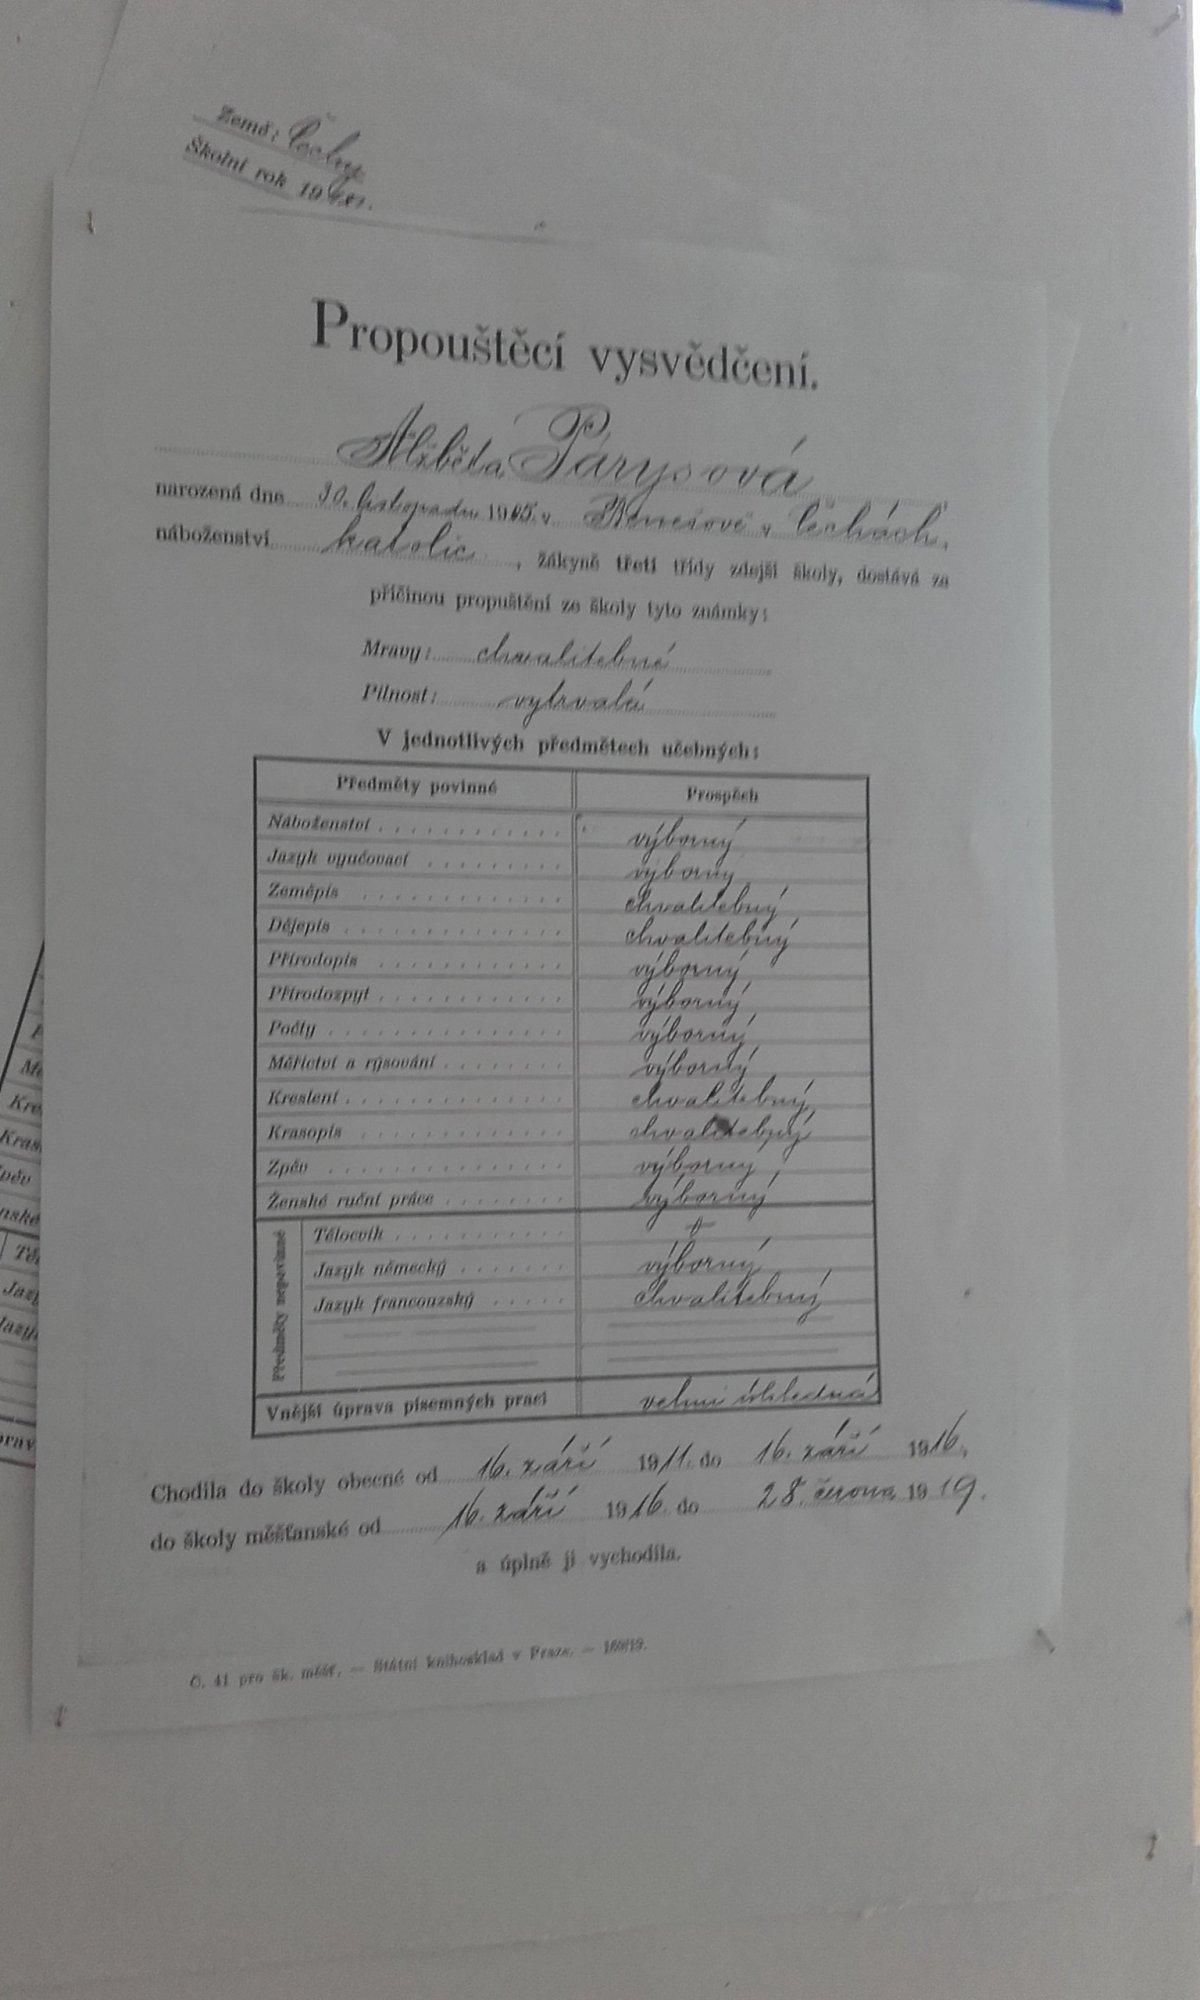 Země: Čechy
Školní rok 19
Propouštěcí vysvědčení.
Alžběta Párysová
narozená dne 30. listopadu 1905 v Benešově v Čechách,
náboženství katolic , žákyně třetí třídy zdejší školy, dostává za
příčinou propuštění ze školy tyto známky:
Mravy: chvalitebné
Pilnost: vytrvalá
V jednotlivých předmětech učebných:
Předměty povinné Prospěch
Náboženství výborný
Jazyk vyučovací výborný
Zeměpis chvalitebný
Dějepis chvalitebný
Přírodopis výborný
Přírodozpyt výborný
Počty výborný
Měřictví a rýsování výborný
Kreslení chvalitebný
Krasopis chvalitebný
Zpěv výborný
Ženské ruční práce výborný
Předměty nepovinné
Tělocvik
Jazyk německý výborný
Jazyk francouzský chvalitebný
Vnější úprava písemných prací velmi úhledná
Chodila do školy obecné od 16. září 1911. do 16. září 1916.
do školy měšťanské od 16. září 1916. do 28. června 1919.
a úplně ji vychodila.
Č. 41 pro šk. měšť. — Státní knihosklad v Praze. —